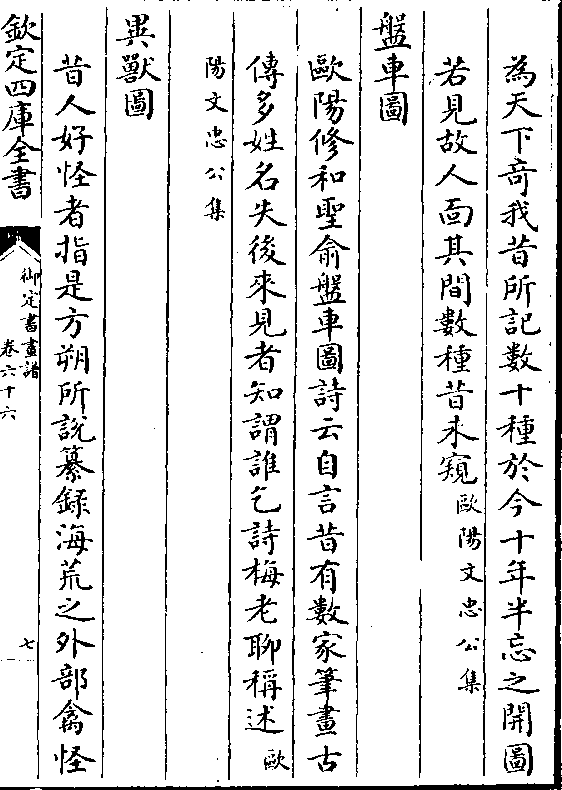 為天下奇我昔所記數十種於今十年半忘之開圖
若見故人面其間數種昔未窺歐陽文忠公集
盤車圖
歐陽修和聖俞盤車圖詩云自言昔有數家筆畫古
傳多姓名失後來見者知謂誰乞詩梅老聊稱述歐
陽文忠公集
異獸圖
昔人好怪者指是方朔所說纂錄海荒之外部禽怪
欽定四庫全書
御定書畫譜
卷六十六
七